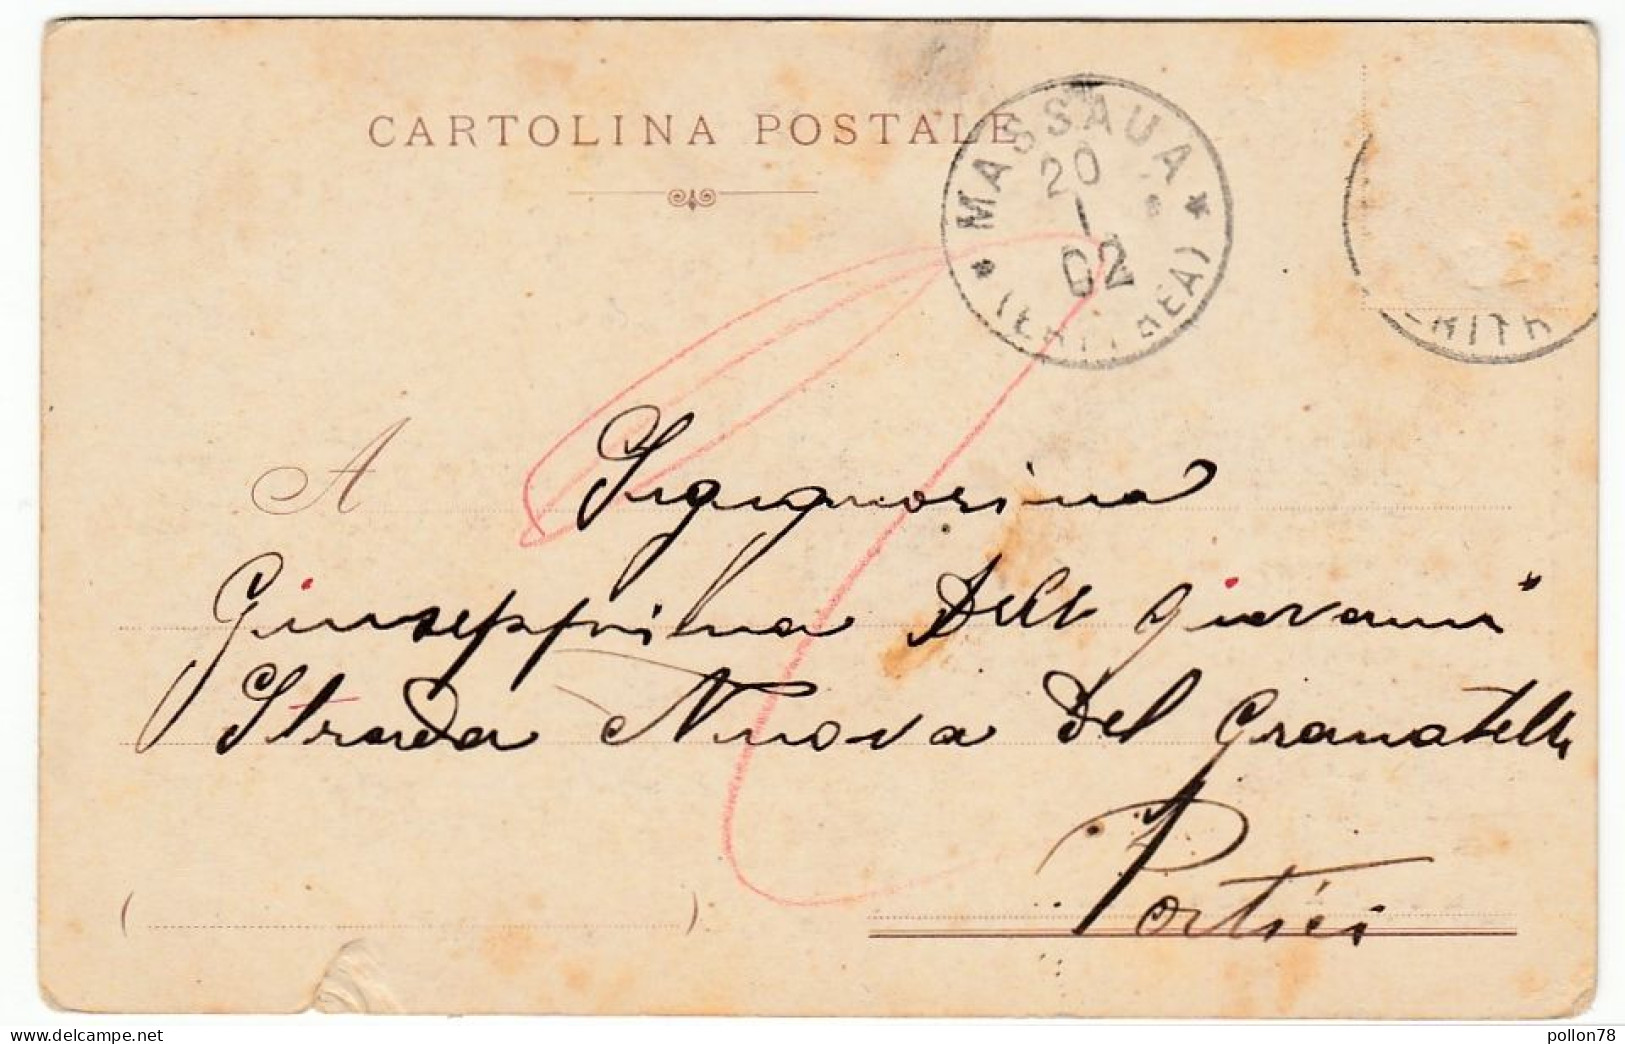 CARTOLINA POSTALE
* MASSAUA *
20
1
02
(ERITREA)
ERITR
A Signorina
Giuseppina Dell Giovanni
Strada Nuova Del Granatello
Portici
( )
delcampe.net
pollon78